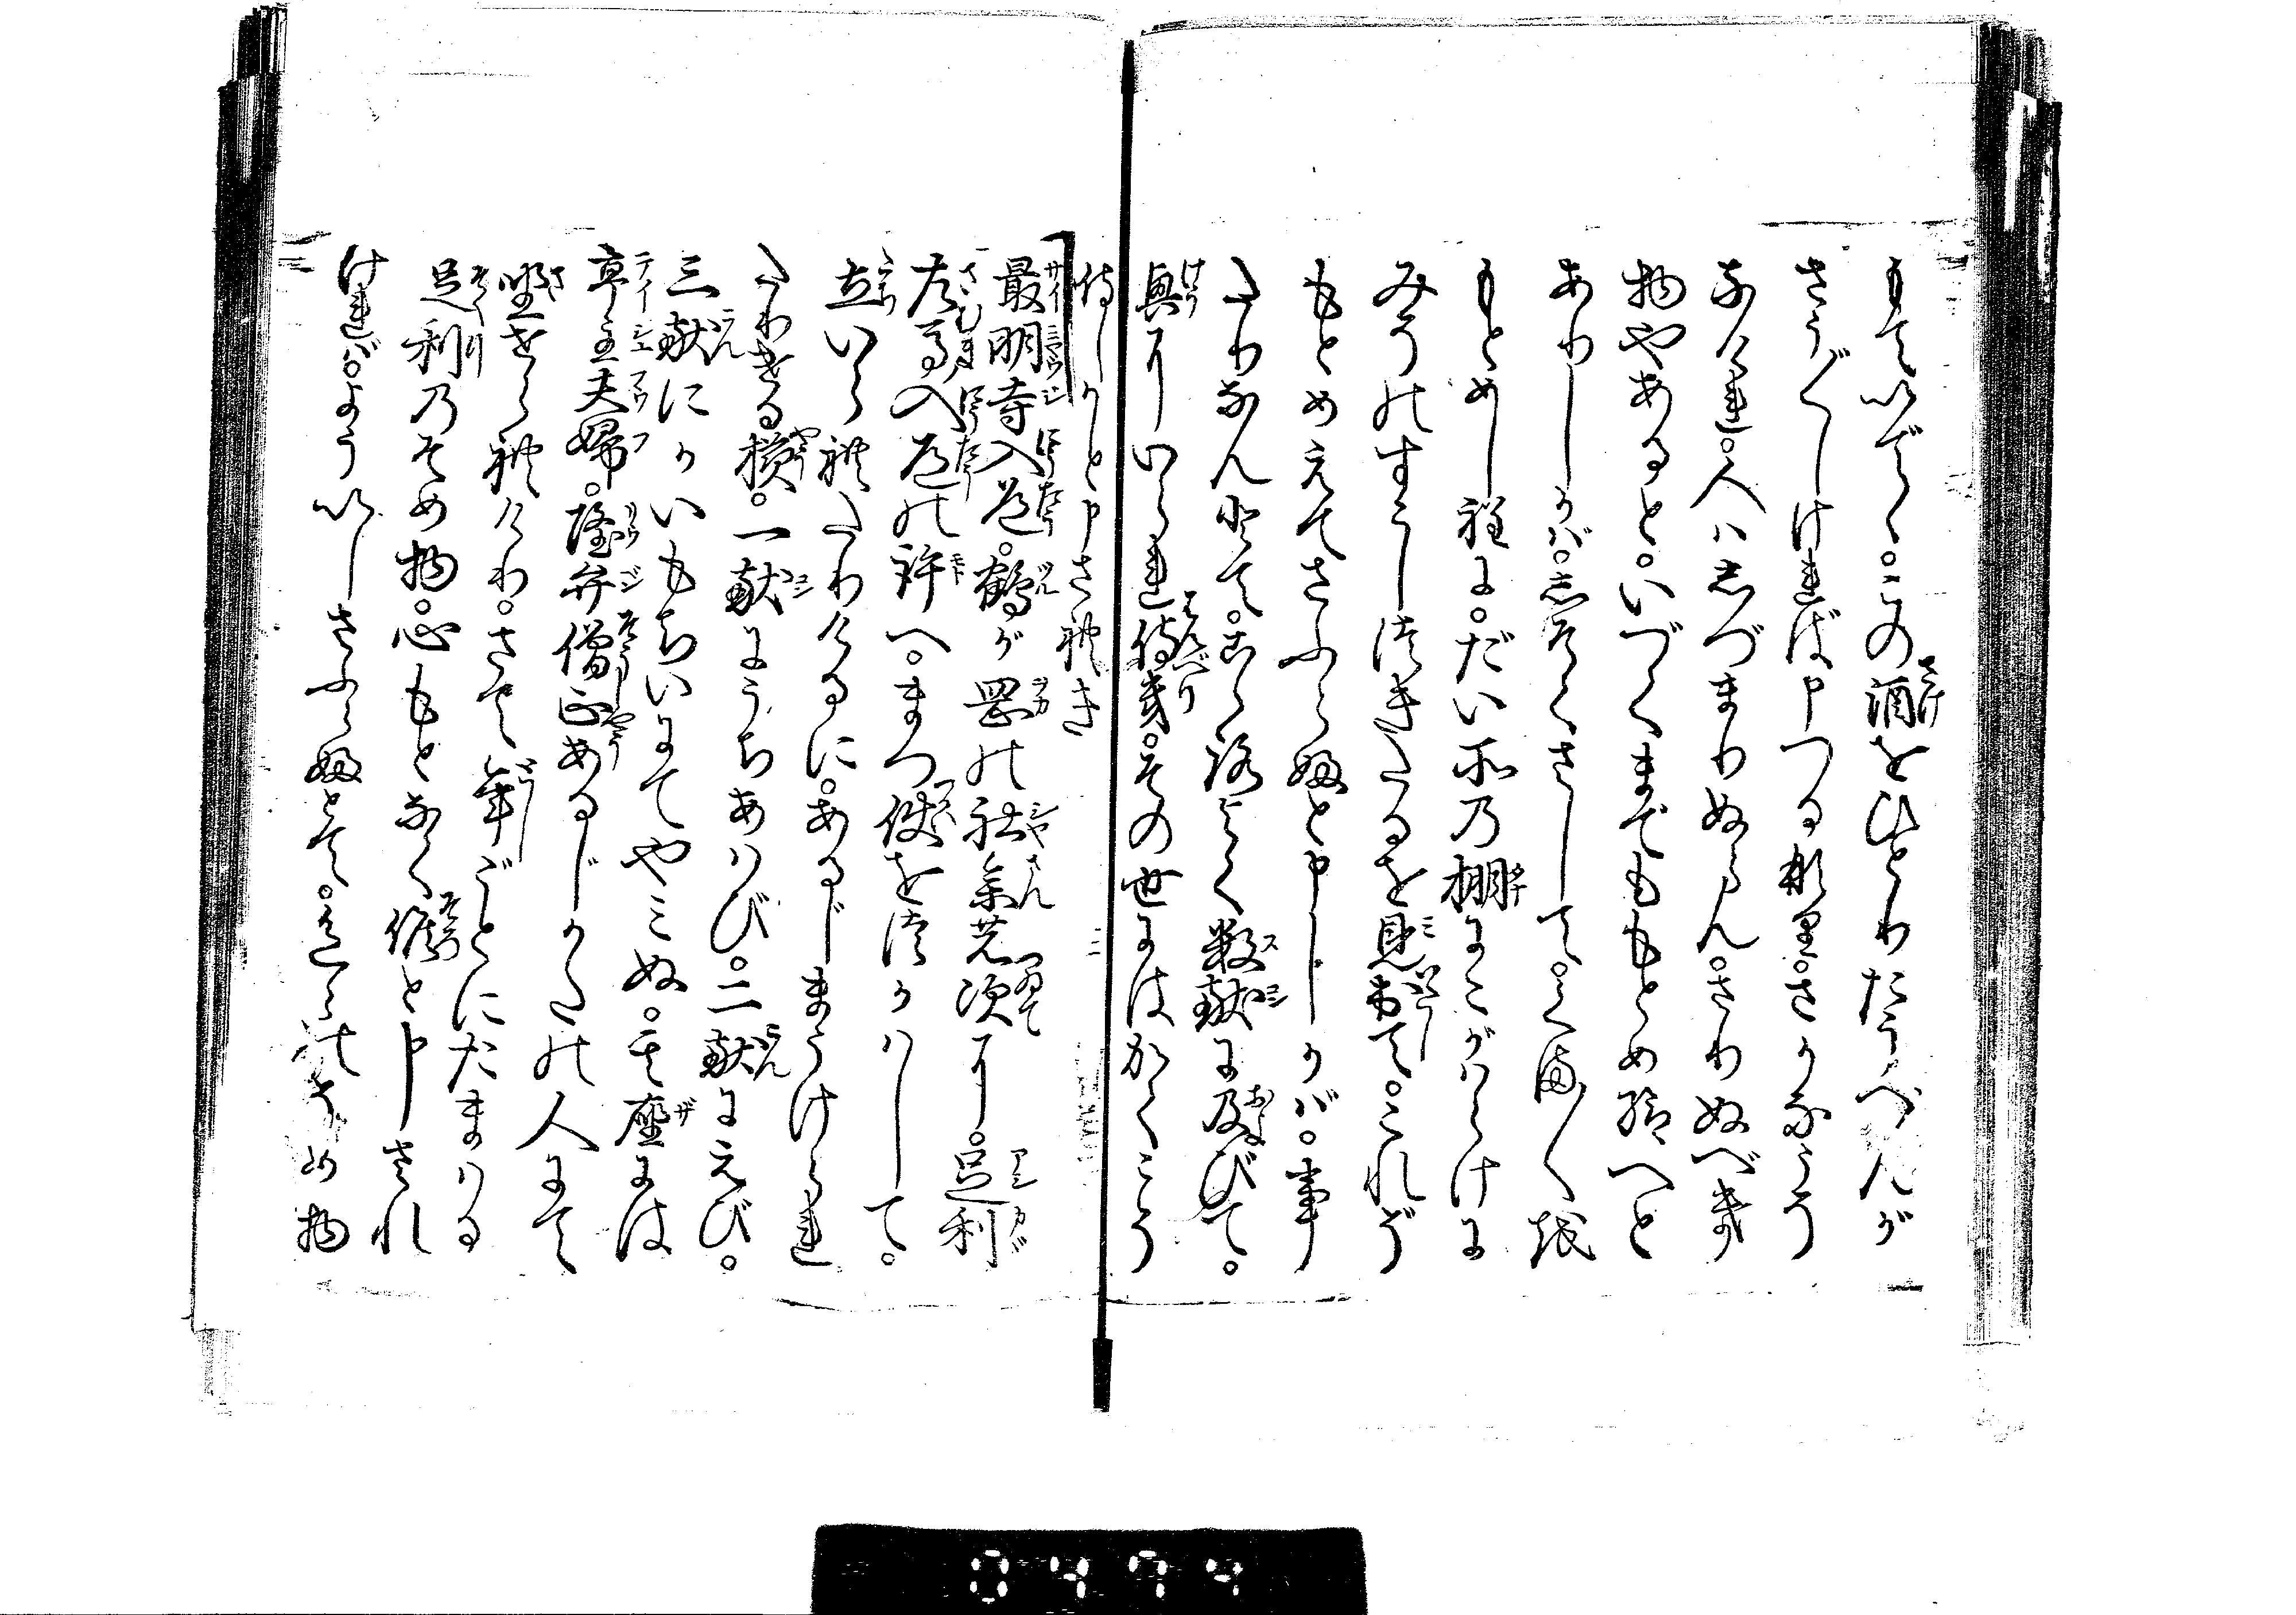 もて出て。この酒をひとりたうべんが
さう〲しければ申つる也。さかなこそ
なけれ。人はしづまりぬらん。さりぬべき
物やあると。いづくまでももとめ給へと
ありしかば。しそくさして。くま〲を
もとめし程に。だい所の棚にこがはらけに
みそのすこしつきたるを見出て。これぞ
もとめえてさふらふと申しかば。事
たりなんとて。心よく数献に及びて。
興にいられ侍き。その世にはかくこそ
侍しかと申されき
最明寺入道。鶴が岡の社参の次に。足利
左馬入道の許へ。まづ使をつかはして。
立いられたりけるに。あるじまうけられ
たりける様。一献にうちあはび。二献にえび。
三献にかいもちいにてやみぬ。其座には
亭主夫婦。隆弁僧正あるじかたの人にて
坐せられけり。さて年ごとにたまはる
足利のそめ物。心もとなく候と申され
ければ。ようゐしさふらふとて。色〳〵のそめ物